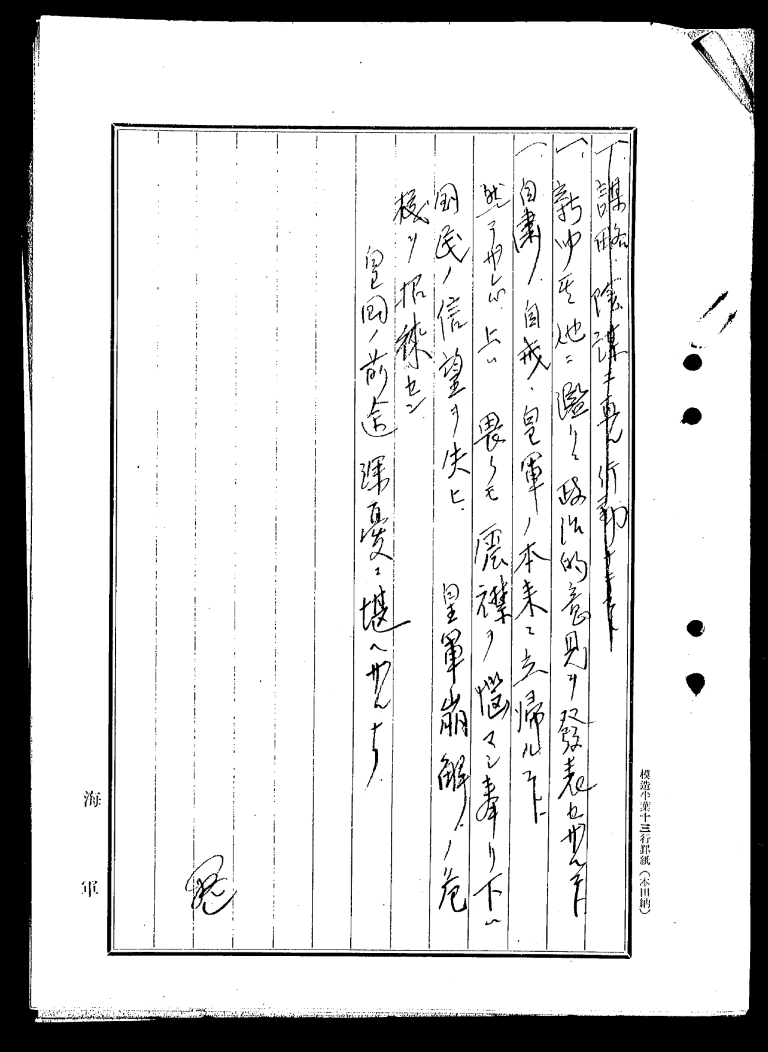 一、謀略、陰謀ニ専ラ行動ナキコト
一、新聞其他ニ濫リニ政治的意見ヲ發表セザルコト
一、自粛、自戒、皇軍ノ本来ニ立帰ルコト
然ラザレバ上ハ畏クモ宸襟ヲ悩マシ奉リ下ハ
国民ノ信望ヲ失ヒ、皇軍崩解ノ危
機ヲ招徠セン
皇国ノ前途深憂ニ堪ヘザルナリ
模造半葉十三行罫紙(本田納)
海軍